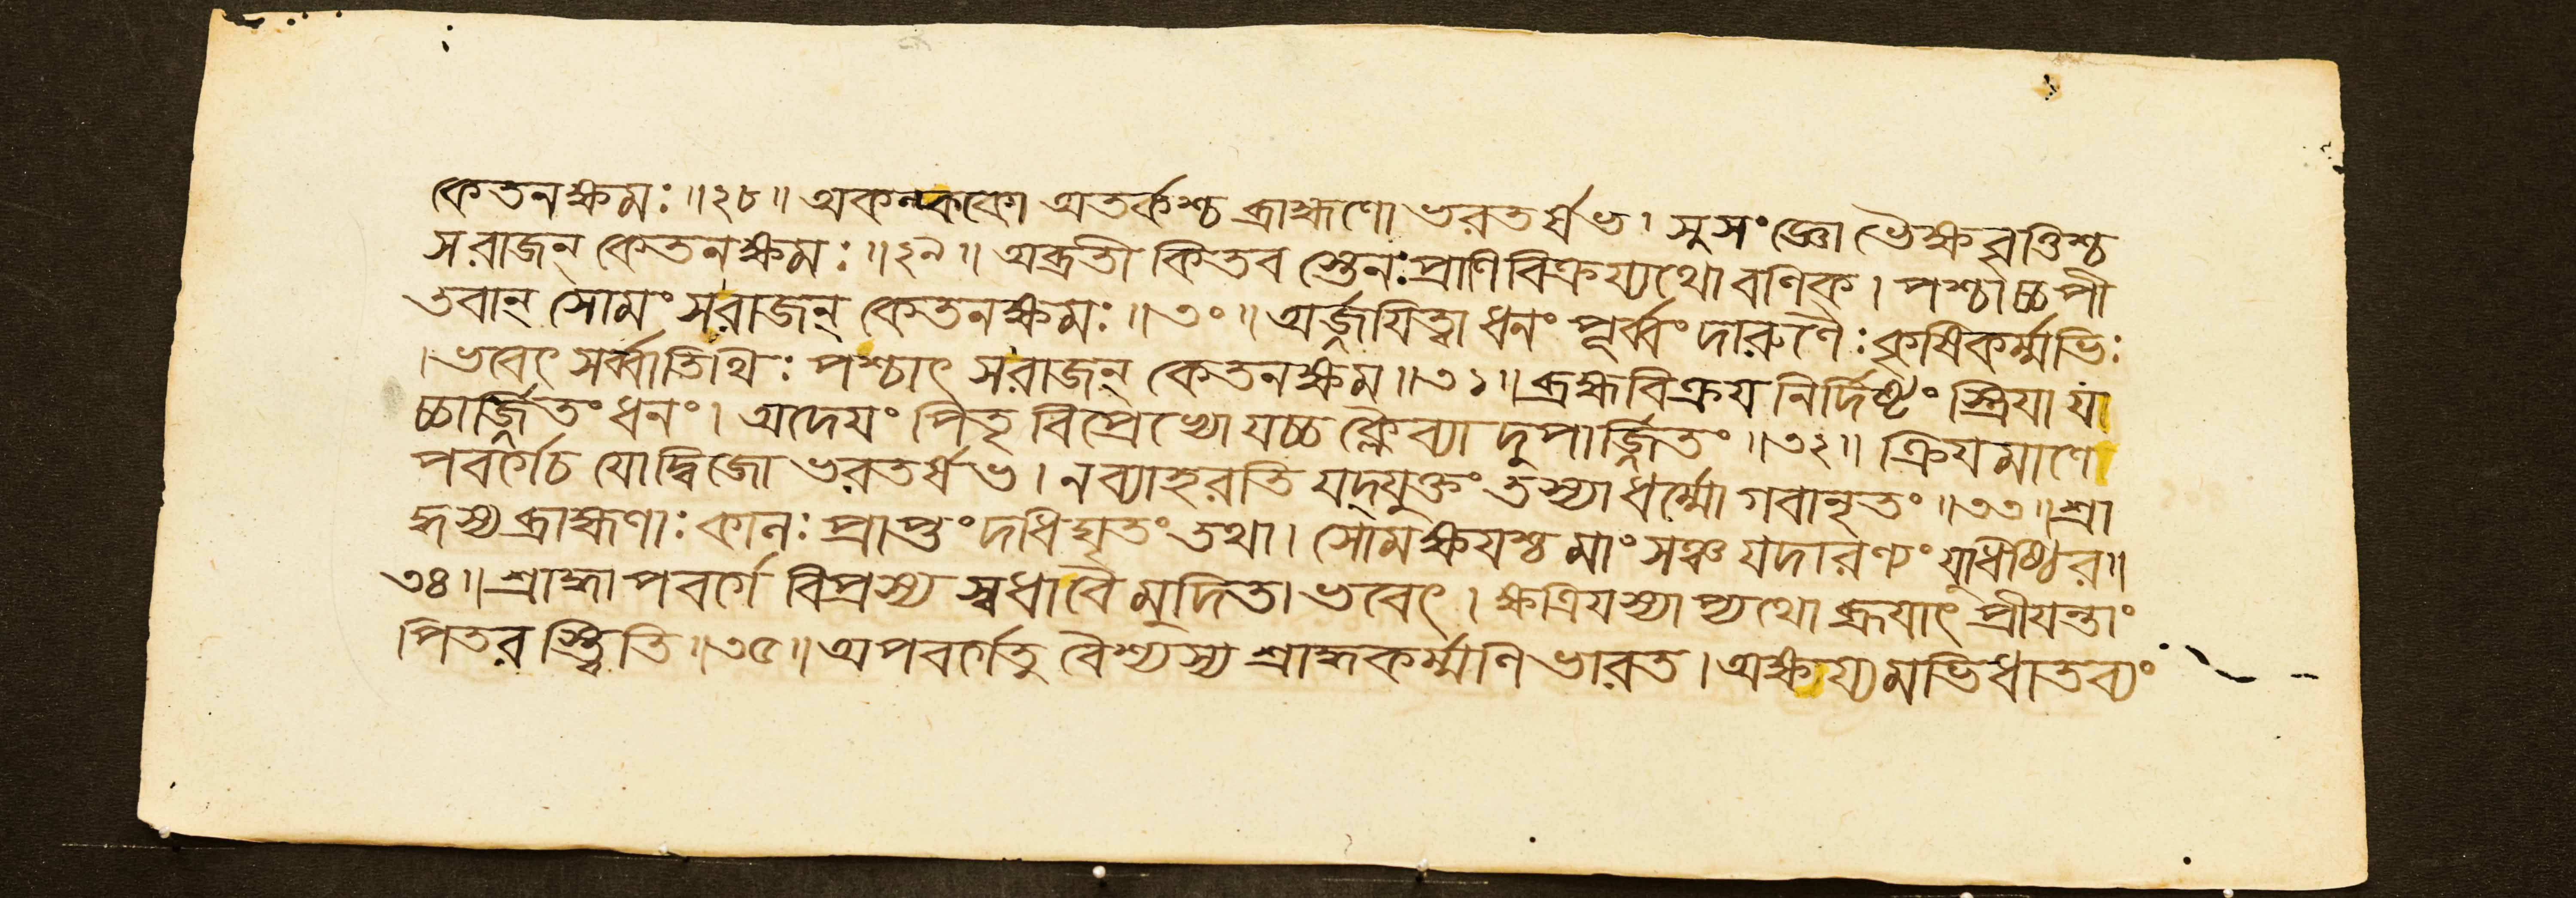 কেতনক্ষমঃ ॥২৮॥ অকল্ককো অতর্কশ্চ ব্রাহ্মণো ভরতর্ষভ। সুসংজ্ঞো ভৈক্ষবৃত্তিশ্চ
সরাজন্ কেতনক্ষমঃ ॥২৯॥ অব্রতী কিতব স্তেনঃ প্রাণিবিক্রয্যথো বণিক্। পশ্চাচ্চপী
তবান্ সোমং সরাজন্ কেতনক্ষমঃ ॥৩০॥ অর্জ্জয়িত্বা ধনং পূর্ব্বং দারুণৈঃ কৃষিকর্ম্মভিঃ
।ভবেৎ সর্ব্বাতিথিঃ পশ্চাৎ সরাজন্ কেতনক্ষম ॥৩১॥ ব্রহ্মবিক্রয় নির্দিষ্টং স্ত্রিয়া য়া
চ্চার্জ্জিতং ধনং। অদেয়ং পিতৃ বিপ্রেভ্যো যচ্চ ক্লৈব্যা দুপার্জ্জিতং ॥৩২॥ ক্রিয়মাণে
পবর্গেচ যোদ্বিজো ভরতর্ষভ। নব্যাহরতি যদ্যুক্তং তস্যা ধর্ম্মো গবানৃতং ॥৩৩॥ শ্রা
দ্ধস্য ব্রাহ্মণাঃ কালঃ প্রাপ্তং দধি ঘৃতং তথা। সোমক্ষয়শ্চ মাংসঞ্চ যদারণ্যং যুধিষ্ঠির॥
৩৪॥ শ্রাদ্ধা পবর্গে বিপ্রস্য স্বধাবৈ মুদিতা ভবেৎ। ক্ষত্রিয়স্যা প্যথো ব্রূয়াৎ প্রীয়ন্তাং
পিতর স্ত্বিতি ॥৩৫॥ অপবর্গেতু বৈশ্যস্য শ্রাদ্ধকর্ম্মণি ভারত। অক্ষয্যমভিধাতব্যং